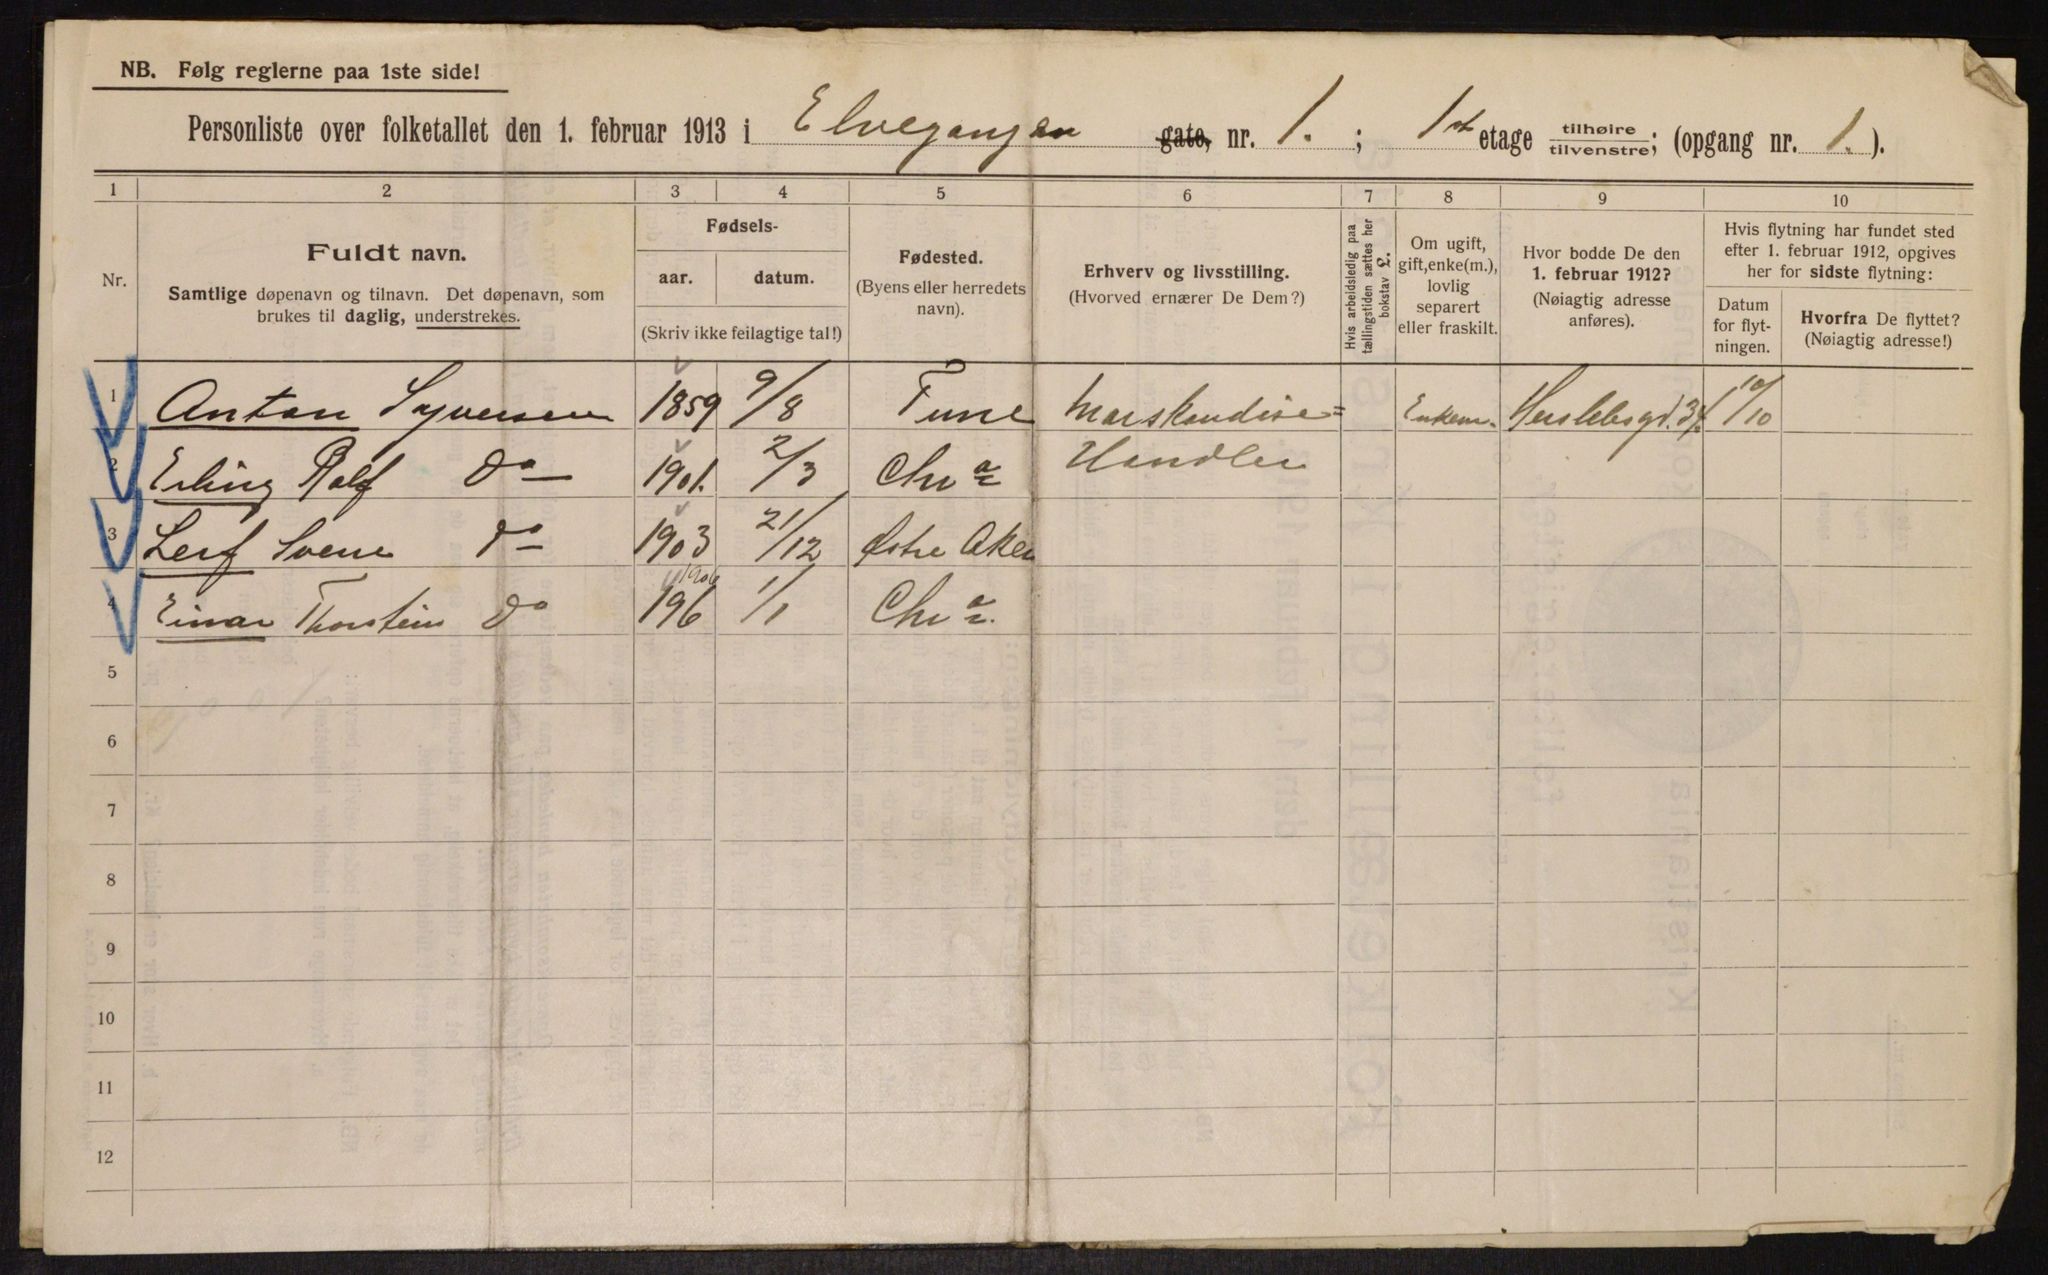 NB. Følg reglerne paa 1ste side!
Personliste over folketallet den 1. februar 1913 i Elvegangen gate, nr. 1. ; 1st etage tilhøire tilvenstre; (opgang nr. 1. ).
1 2 3 4 5 6 7 8 9 10
Nr.
Fuldt navn.
Samtlige døpenavn og tilnavn. Det døpenavn, som
brukes til daglig, understrekes.
Fødsels-
aar. datum.
(Skriv ikke feilagtige tal!)
Fødested.
(Byens eller herredets
navn).
Erhverv og livsstilling.
(Hvorved ernærer De Dem?)
Hvis arbeidsledig paa
tællingstiden sættes her
bokstav L.
Om ugift,
gift, enke(m.),
lovlig
separert
eller fraskilt.
Hvor bodde De den
1. februar 1912?
(Nøiagtig adresse
anføres).
Hvis flytning har fundet sted
efter 1. februar 1912, opgives
her for sidste flytning:
Datum
for flyt-
ningen.
Hvorfra De flyttet?
(Nøiagtig adresse!)
1 Anton Syversen 1859 9/8 Tune Marskandise= Enkem. Herslebsgd. 34. 10/10
2 Erling Rolf Do 1901. 2/3 Chr a Handler
3 Leif Sverre do 1903 21/12 Østre Aker
1906
4 Einar Thorstein do 196 1/1 Chr a.
5
6
7
8
9
10
11
12